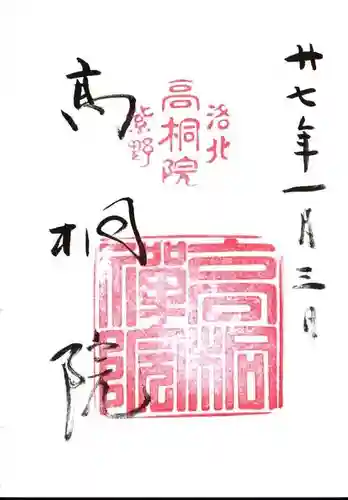 廿七年一月三日
洛北
高桐院
紫野
高桐院
高桐禅院